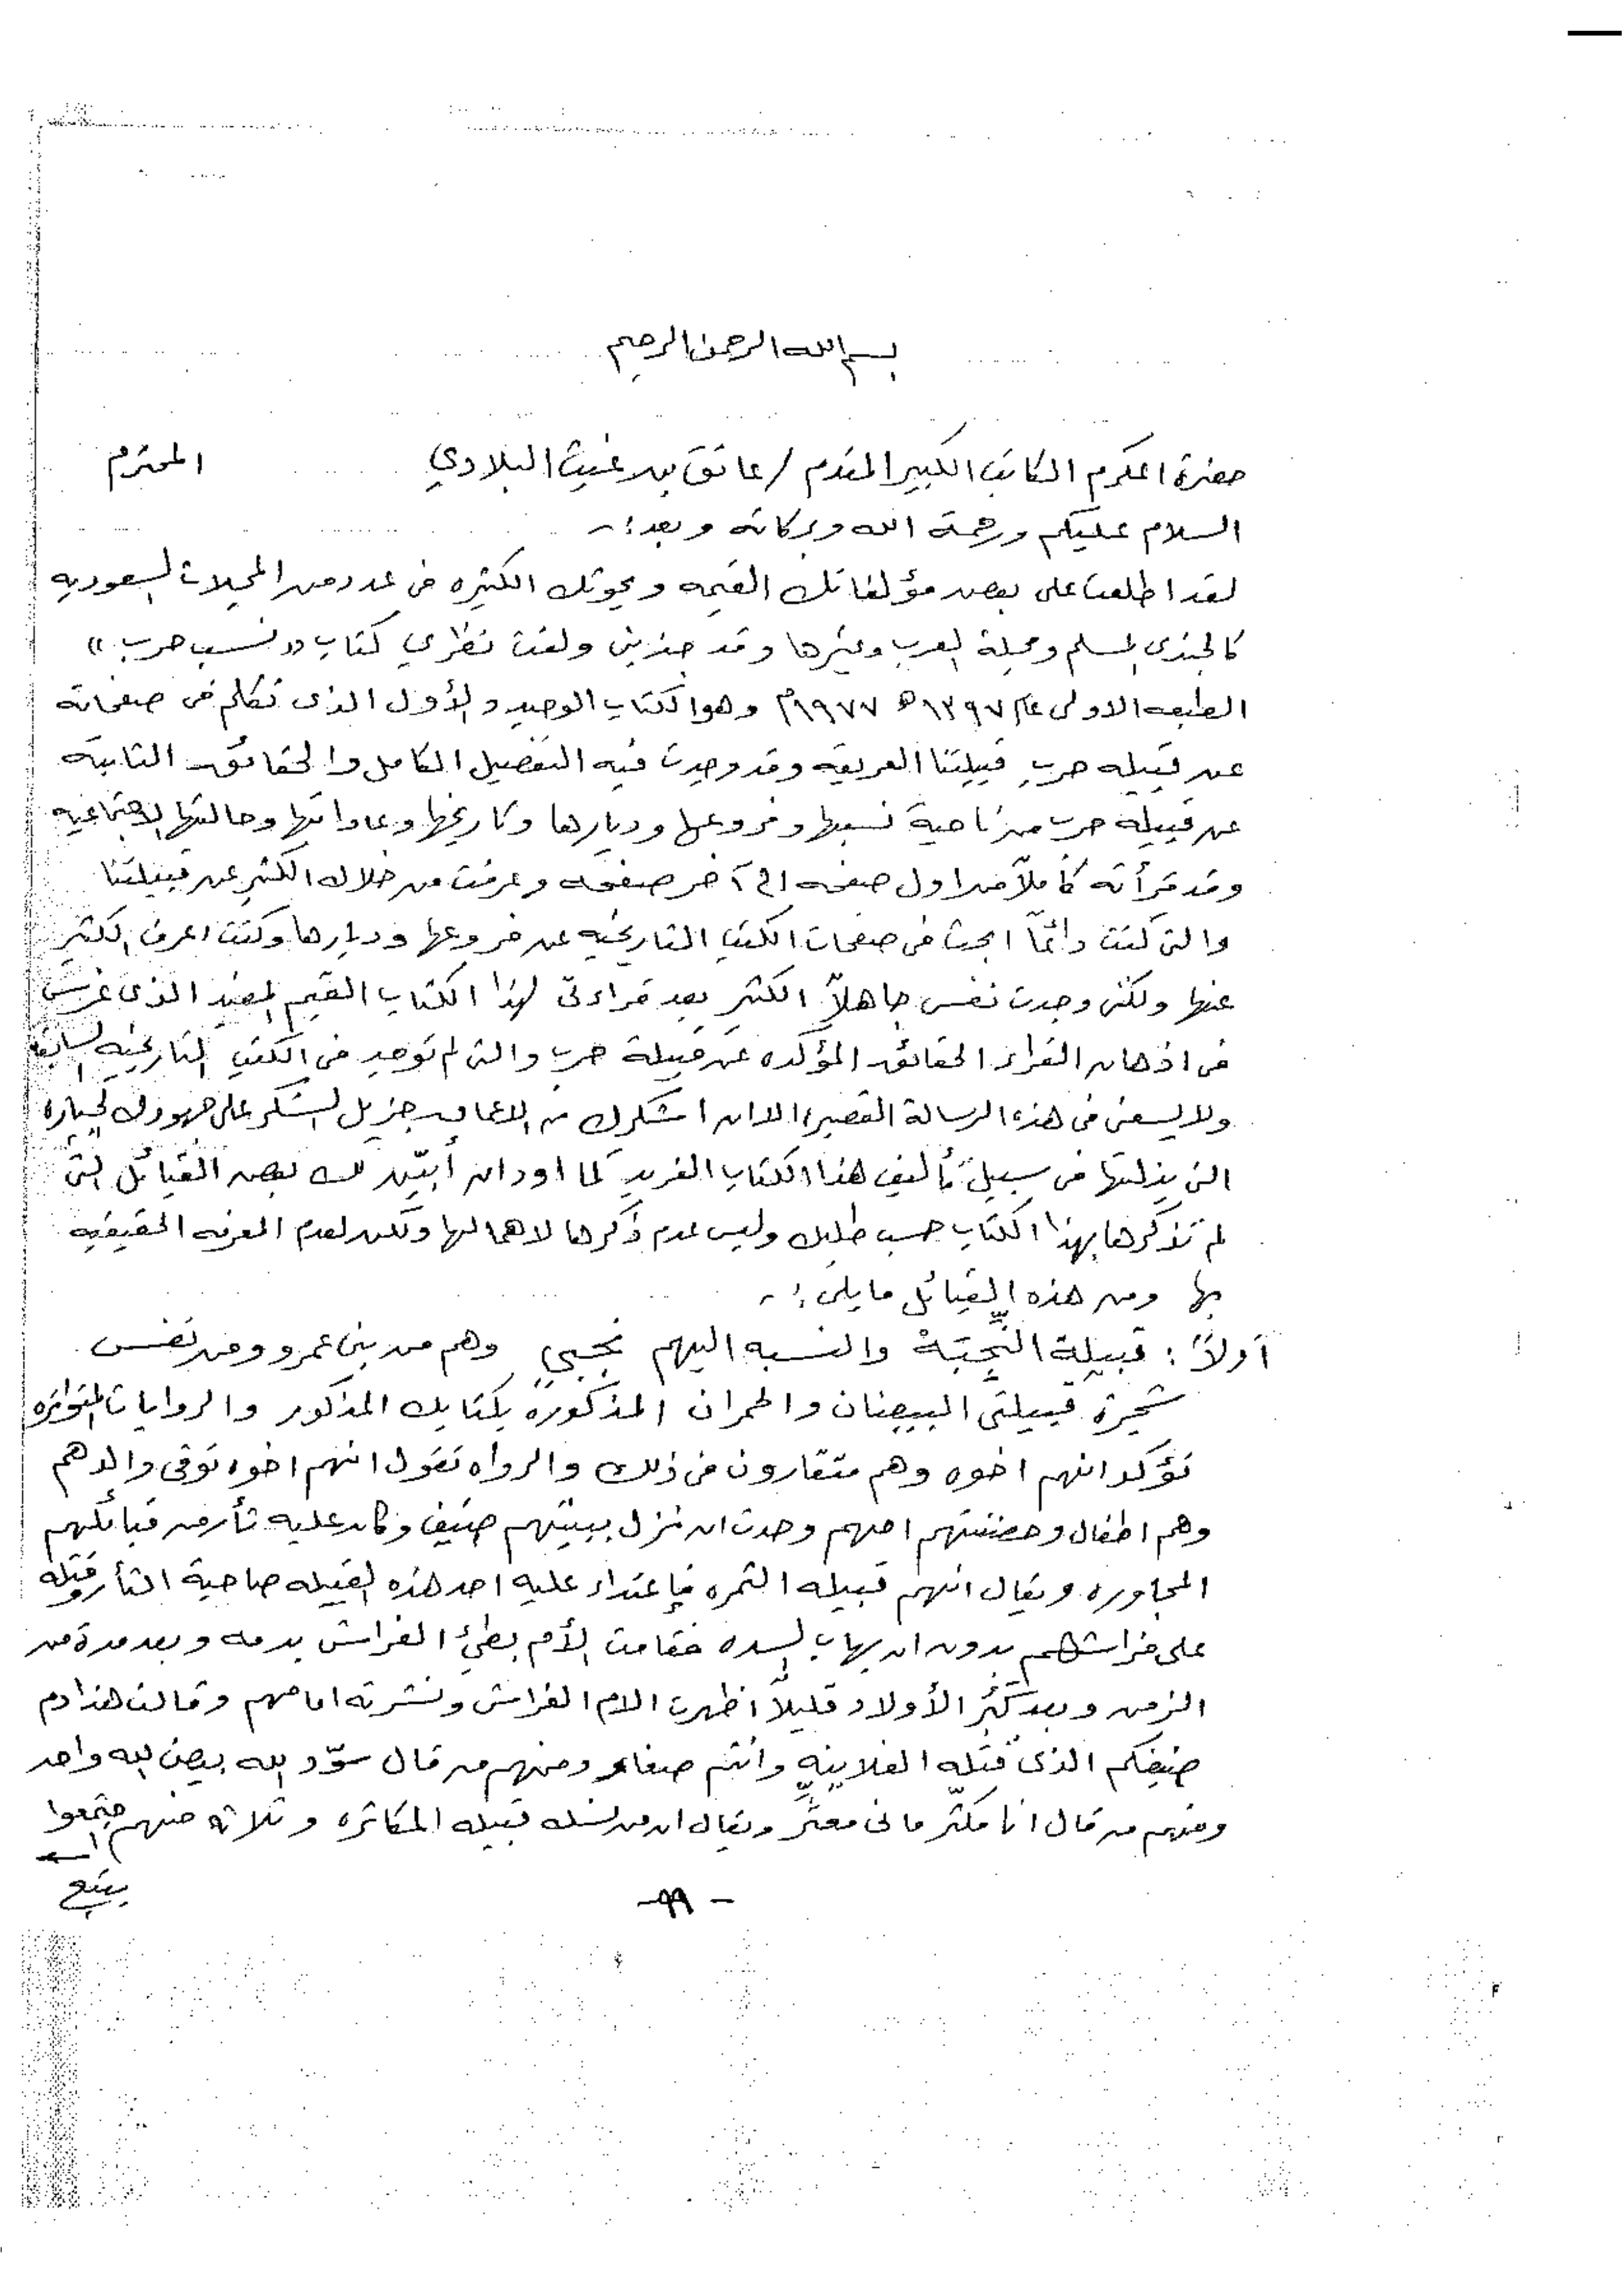 بسم الله الرحمن الرحيم
حضرة المكرم الكاتب الكبير المقدم / عاتق بن غيث البلادي المحترم
السلام عليكم ورحمة الله وبركاته وبعد :-
لقد اطلعت على بعض مؤلفاتك القيمه وبحوثك الكثيره في عدد من المجلات السعوديه
كالجندي المسلم ومجلة العرب وغيرها وقد جذبني ولفت نظري كتاب « نسب حرب »
الطبعه الاولى عام ١٣٩٧هـ ١٩٧٧م وهو الكتاب الوحيد والأول الذى تكلم في صفحاته
عن قبيله حرب قبيلتنا العريقه وقد وجدت فيه التفصيل الكامل والحقائق الثابته
عن قبيله حرب من ناحية نسبها وفروعها وديارها وتاريخها وعاداتها وحالتها الاجتماعيه
وقد قرأته كاملاً من اول صفحه الى آخر صفحه وعرفت من خلاله الكثير عن قبيلتنا
والتي كنت دائماً ابحث في صفحات الكتب التاريخيه عن فروعها وديارها وكنت اعرف الكثير
عنها ولكني وجدت نفسي جاهلاً الكثير بعد قراءتي لهذا الكتاب القيم المفيد الذى غرست
في اذهان القراء الحقائق المؤكده عن قبيلة حرب والتي لم توجد في الكتب التاريخيه السابقه
ولا يسعني في هذه الرسالة القصيره الا ان اشكرك من الاعماق جزيل الشكر على جهودك الجباره
التي بذلتها في سبيل تأليف هذا الكتاب الفريد كما اود ان أبيّن لك بعض القبائل التي
لم تذكرها بهذا الكتاب حسب طلبك وليس عدم ذكرها لاهمالها ولكن لعدم المعرفه الحقيقيه
بها ومن هذه القبائل مايلي :-
أولاً : قبيلة النِّجَبَةْ والنسبه اليهم نجبي وهم من بني عمرو ومن نفس
شجرة قبيلتى البيضان والحمران المذكورة بكتابك المذكور والروايات المتواتره
تؤكد انهم اخوه وهم متقارون في ذلك والرواه تقول انهم اخوه توفى والدهم
وهم اطفال وحضنتهم امهم وحدث ان نزل ببيتهم ضيف وكان عليه ثأر من قبائلهم
المجاوره ويقال انهم قبيله الثمره فإعتداء عليه احد هذه القبيله صاحبة الثأر وقتله
على فراشهم بدون ان يهاب لسده فقامت الأم بطيّ الفراش بدمه وبعد مدة من
الزمن وبعد كُبْر الأولاد قليلاً اظهرت الام الفراش ونشرته امامهم وقالت هذا دم
ضيفكم الذى قتله الفلانيه وانتم صغار ومنهم من قال سوّد الله بيض الله واحد
ومنهم من قال انا مكثّر ماني معثّر ويقال ان من نسله قبيله المكاثره وثلاثه منهم اجتمعوا
يتبع
- ٩٩ -